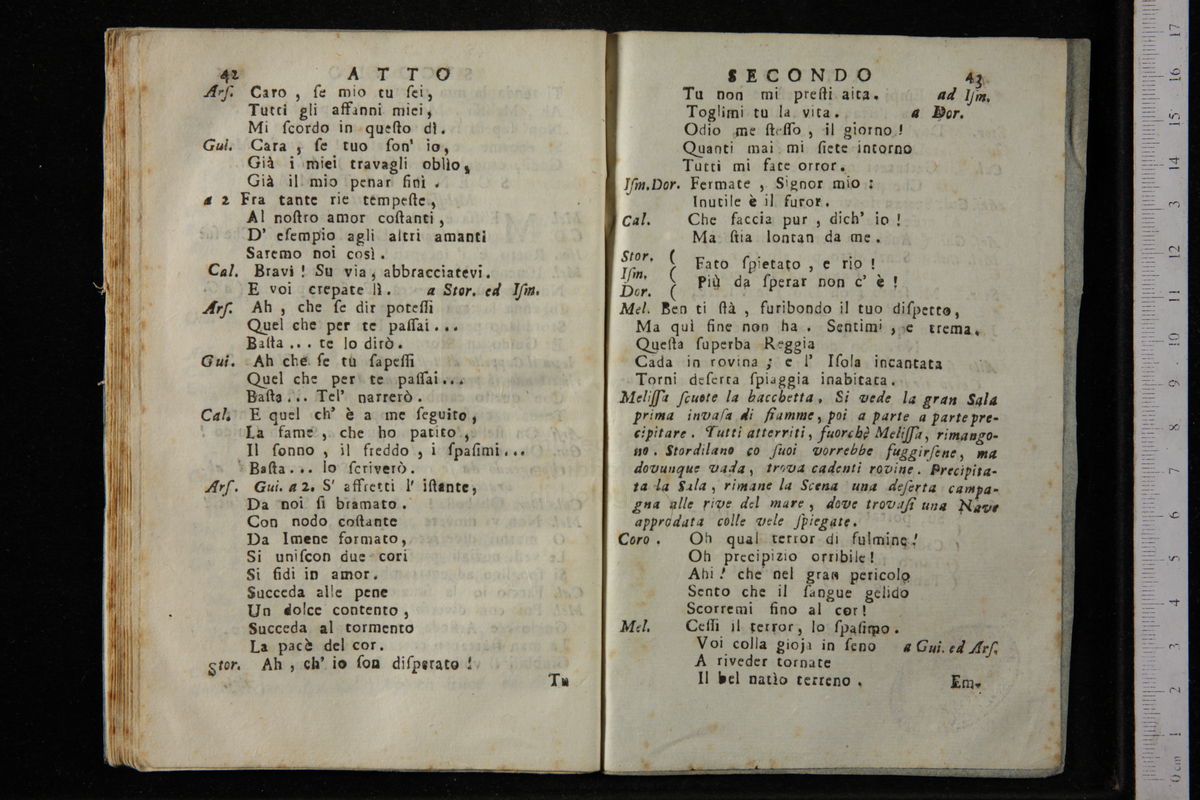 42 ATTO
Arſ. Caro , ſe mio tu ſei,
Tutti gli affanni miei,
Mi ſcordo in queſto dì.
Gui. Cara , ſe tuo ſon' io,
Già i miei travagli oblìo,
Già il mio penar finì .
a 2 Fra tante rie tempeſte,
Al noſtro amor coſtanti,
D' eſempio agli altri amanti
Saremo noi così .
Cal. Bravi ! Su via, abbracciatevi.
E voi crepate lì . a Stor. ed Iſm.
Arſ. Ah , che ſe dir poteſſi
Quel che per te paſſai...
Baſta... te lo dirò.
Gui. Ah che ſe tu ſapeſſi
Quel che per te paſſai...
Baſta... Tel' narrerò.
Cal. E quel ch' è a me ſeguito,
La fame , che ho patito,
Il ſonno , il freddo , i ſpaſimi...
Baſta... lo ſcriverò.
Arſ. Gui. a 2. S' affretti l' iſtante,
Da noi ſi bramato .
Con nodo coſtante
Da Imene formato,
Si uniſcon due cori
Si fidi in amor.
Succeda alle pene
Un dolce contento,
Succeda al tormento
La pacè del cor.
Stor. Ah , ch' io ſon diſperato !
Tu
SECONDO 43
Tu non mi preſti aita. ad Iſm.
Toglimi tu la vita. a Dor.
Odio me ſteſſo , il giorno !
Quanti mai mi ſiete intorno
Tutti mi fate orror.
Iſm.Dor. Fermate , Signor mio :
Inutile è il furor.
Cal. Che faccia pur , dich' io !
Ma ſtia lontan da me .
Stor. (
Iſm. ( Fato ſpietato , e rio !
Dor. ( Più da ſperar non c' è !
Mel. Ben ti ſtà , furibondo il tuo diſpetto,
Ma quì fine non ha . Sentimi , e trema.
Queſta ſuperba Reggia
Cada in rovina ; e l' Iſola incantata
Torni deſerta ſpiaggia inabitata.
Meliſſa ſcuote la bacchetta. Si vede la gran Sala
prima invaſa di fiamme, poi a parte a parte pre-
cipitare . Tutti atterriti, fuorchè Meliſſa, rimango-
no. Stordilano co ſuoi vorrebbe fuggirſene, ma
dovunque vada, trova cadenti rovine. Precipita-
ta la Sala , rimane la Scena una deſerta campa-
gna alle rive del mare, dove trovaſi una Nave
approdata colle vele ſpiegate.
Coro . Oh qual terror di fulmine!
Oh precipizio orribile !
Ahi ! che nel gran pericolo
Sento che il ſangue gelido
Scorremi fino al cor !
Mel. Ceſſi il terror, lo ſpaſimo.
Voi colla gioja in ſeno a Gui. ed Arſ.
A riveder tornate
Il bel natìo terreno .
Em-
0 cm 1 2 3 4 5 6 7 8 9 10 11 12 13 14 15 16 17